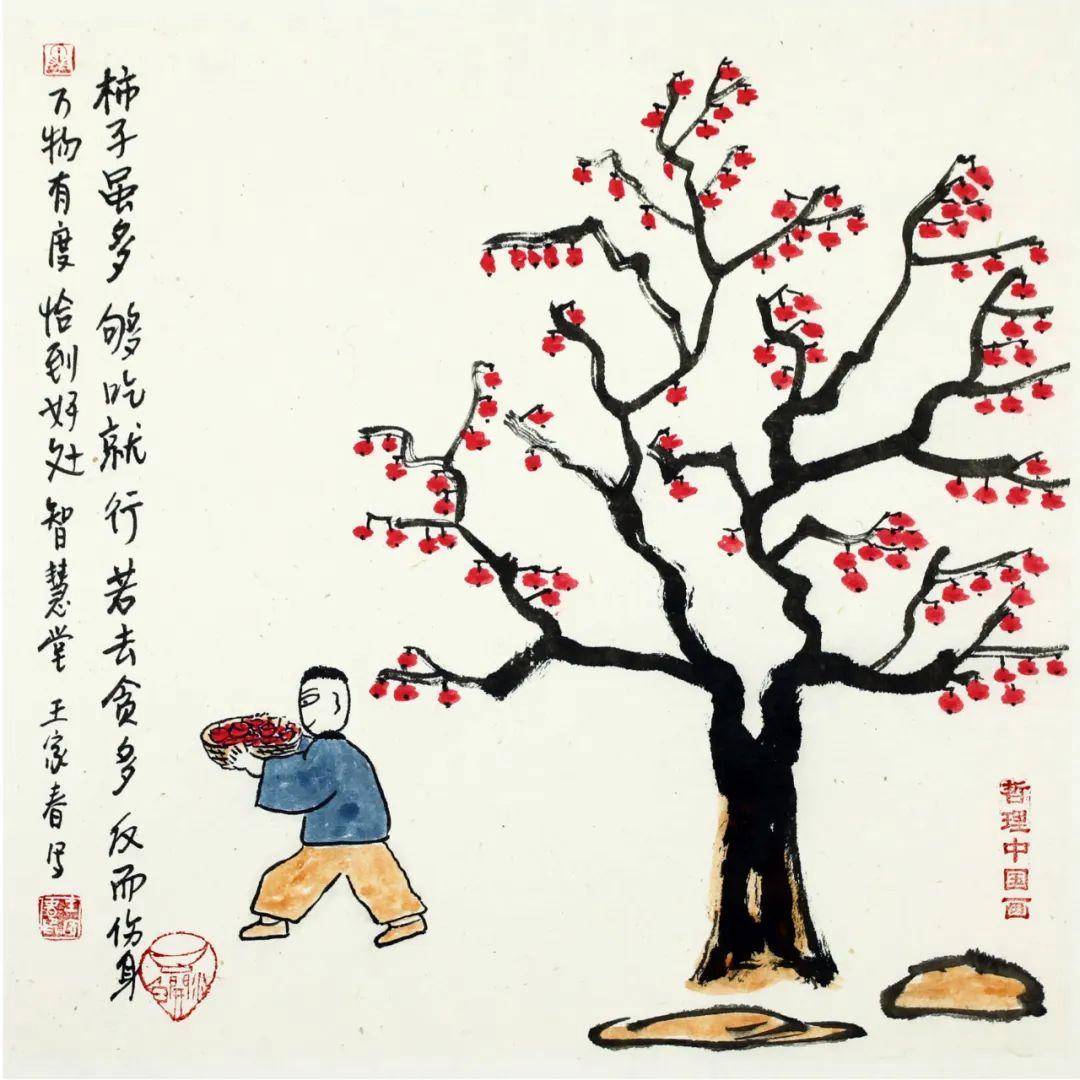 柿子虽多够吃就行若去贪多反而伤身
万物有度恰到好处智慧堂王家春写
哲理中国画